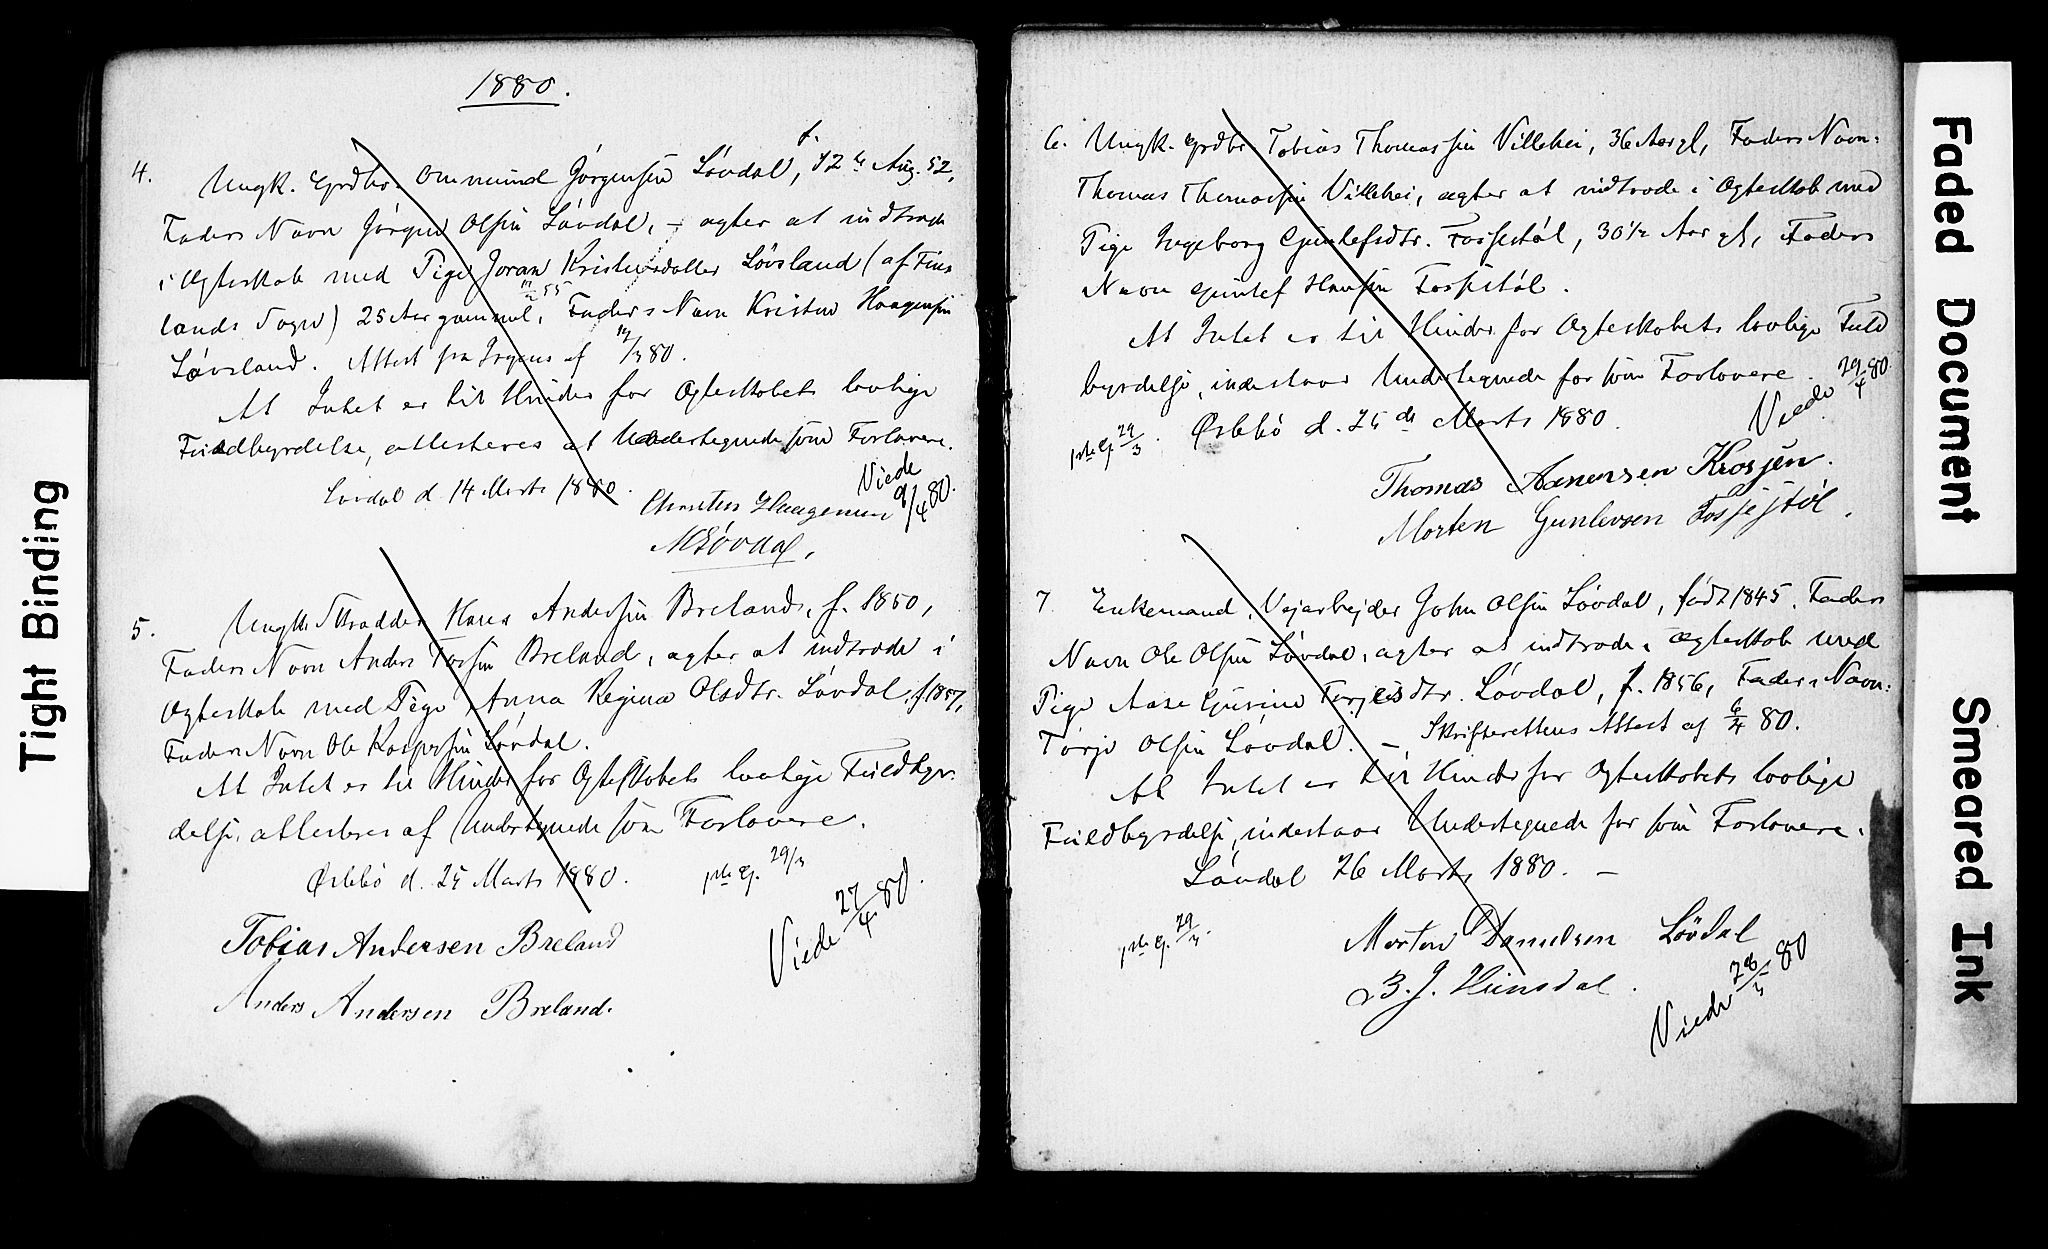 1880.
4. Ungk. Grdbr. Ommund Jörgensen Lövdal, f. 12te Aug. 52,
Faders Navn Jörgen Olsen Lövdal, - agter at indtræde
i Ægteskab med Pige Joran Kristensdatter Lövsland (af Fins
lands Sogn) 25 Aar gammel, Faders Navn Kristen Haagensen
Lövsland. Attest fra af 12/3 80.
At Intet er til Hinder for Ægteskabets lovlige
Fuldbyrdelse, attesteres af Undertegnede som Forlovere.
Lövdal d. 14 Marts 1880.
Viede 9/4 80.
Christen Haagensen
MLövdal,
5. Ungk. Skrædder Hans Andersen Breland, f. 1850,
Faders Navn Anders Torsen Breland, agter at indtræde i
Ægteskab med Pige Anna Regine Olsdtr. Lövdal, f 1857,
Faders Navn Ole Kaspersen Lövdal.
At Intet er til Hinder for Ægteskabets lovlige Fuldbyr-
delse, attesteres af Undertegnede som Forlovere.
Øslebö d. 25 Marts 1880.
1ste G. 29/3
Viede 27/4 80.
Tobias Andersen Breland
Anders Andersen Breland.
6. Ungk. Grdbr Tobias Thomassen Villehei, 36 Aar gl, Faders Navn:
Thomas Thomassen Villehei, agter at indtræde i Ægteskab med
Pige Ingeborg Gunlefsdtr. Fossestöl, 30 1/2 Aar gl, Faders
Navn Gunlef Hansen Fossestöl.
At Intet er til Hinder for Ægteskabets lovlige Fuld
byrdelse, indestaar Undertegnede for som Forlovere.
Viede 29/4 80.
Øslebö d. 25de Marts 1880.
1ste G. 29/3.
Thomas Aanensen Krossen.
Morten Gunlevsen Fossestöl.
7 Enkemand, Vejarbejder John Olsen Lövdal, födt 1845. Faders
Navn Ole Olsen Lövdal, agter at indtræde i Ægteskab med
Pige Aase Gurine Torjesdtr. Lövdal, f. 1856, Faders Navn:
Torje Olsen Lövdal. - Skifterettens Attest af 6/4 80.
At Intet er til Hinder for Ægteskabets lovlige
Fuldbyrdelse, indestaar Undertegnede for som Forlovere.
Lövdal 26 Marts 1880. -
1ste G. 29/3.
Morten Danielsen Lövdal
B. J. Hunsdal.
Viede 28/5 80
Tight Binding
Faded Document
Smeared Ink